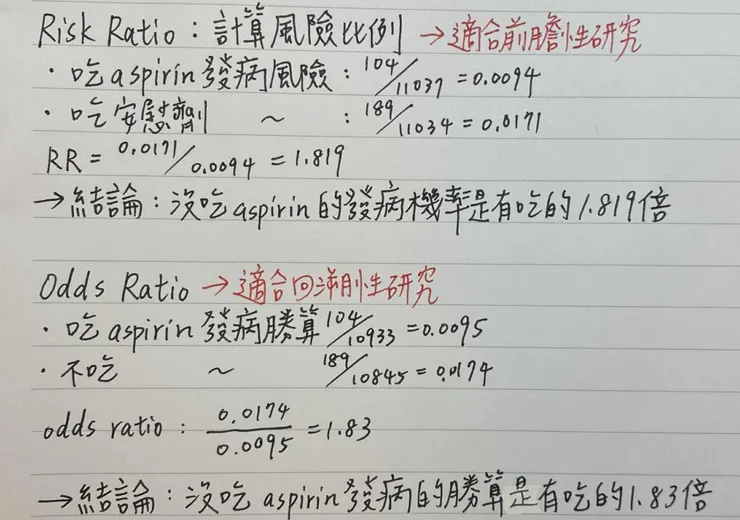 Risk Ratio：計算風險比例 →適合前瞻性研究
・吃aspirin發病風險：104/11037 = 0.0094
・吃安慰劑 ～ ：189/11034 = 0.0171
RR = 0.0171/0.0094 = 1.819
→結論：沒吃aspirin的發病機率是有吃的1.819倍
Odds Ratio →適合回溯性研究
・吃aspirin發病勝算 104/10933 = 0.0095
・不吃 ～ 189/10845 = 0.0174
odds ratio： 0.0174/0.0095 = 1.83
→結論：沒吃aspirin發病的勝算是有吃的1.83倍